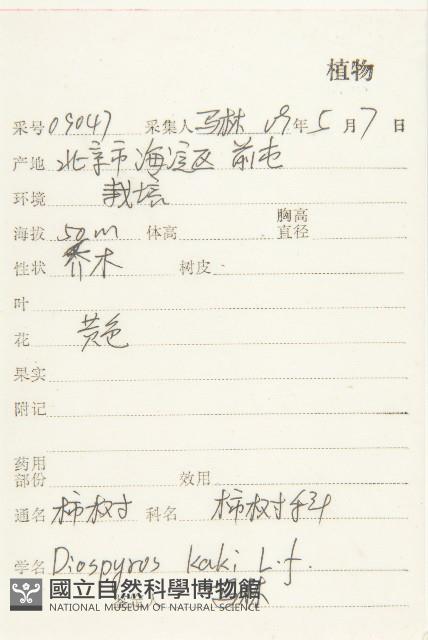 植物
采号 09047 采集人 马林 09年5月7日
产地 北京市海淀区 前屯
环境 栽培
胸高
海拔 50m 体高 直径
性状 乔木 树皮
叶
花 黄色
果实
附记
药用
部份 效用
通名 柿树 科名 柿树科
学名 Diospyros kaki L.f.
國立自然科學博物館
NATIONAL MUSEUM OF NATURAL SCIENCE